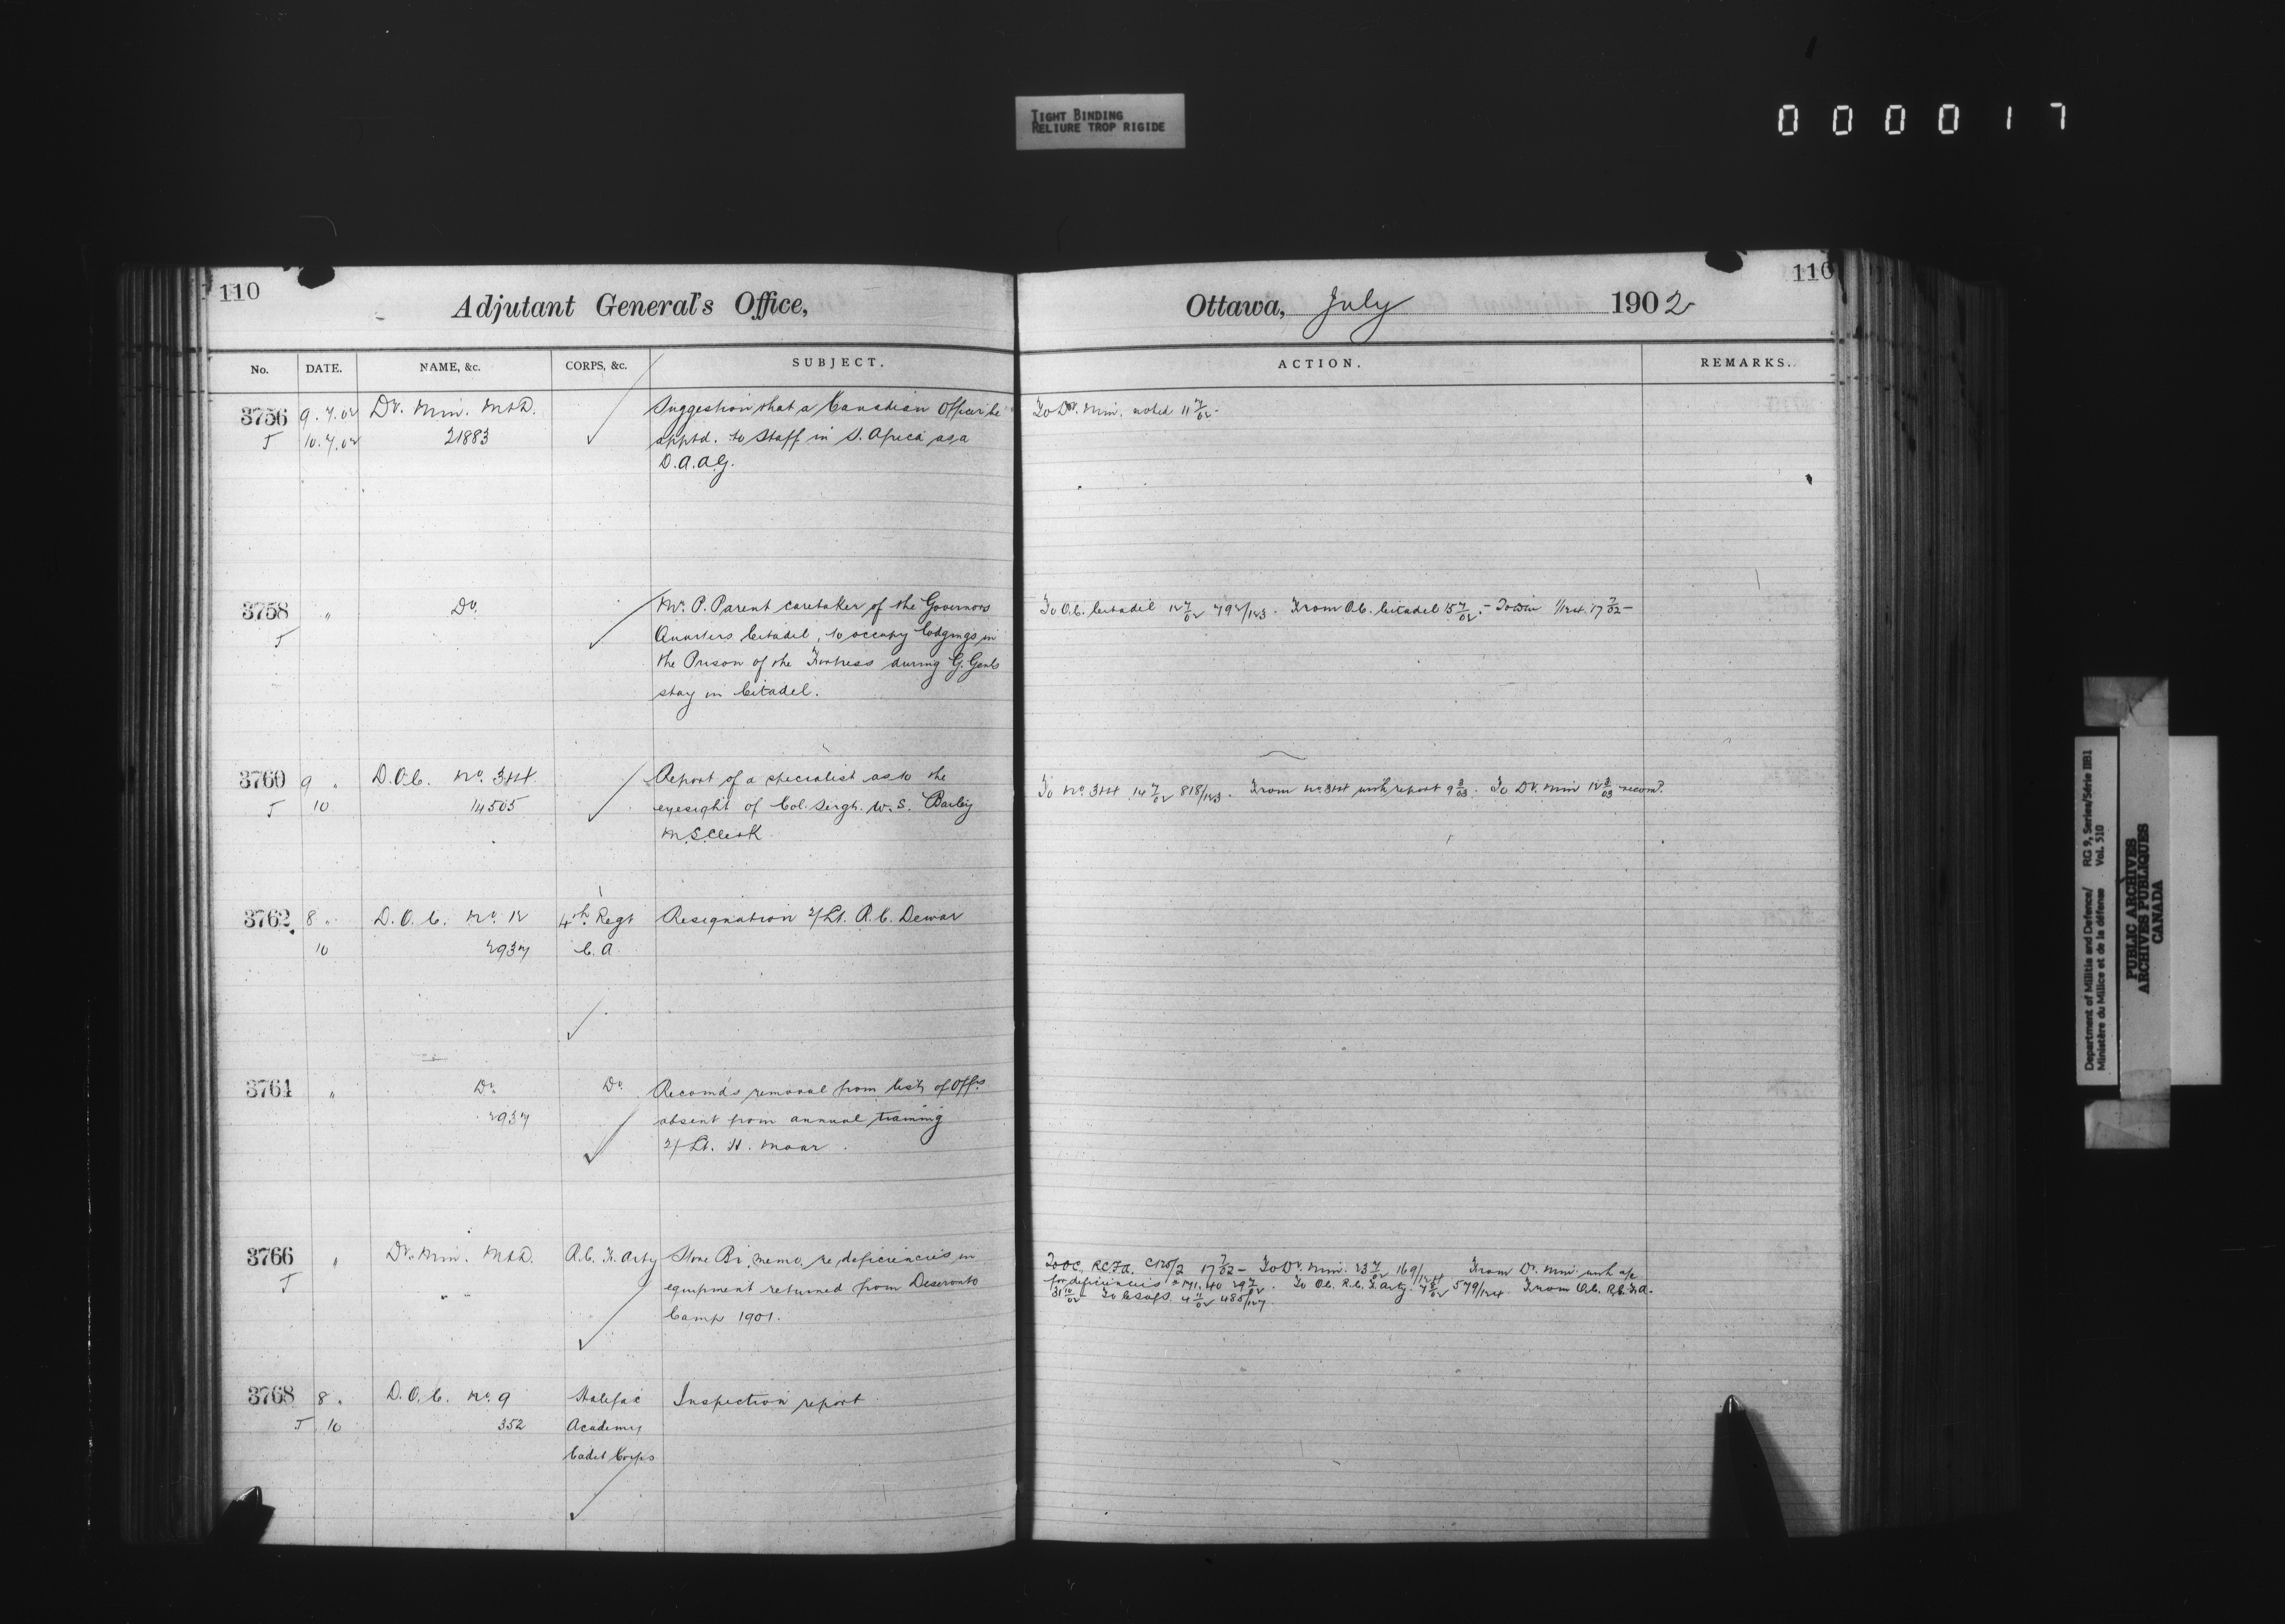 TIGHT BINDING
RELIURE TROP RIGIDE
000017
110
Adjutant General's Office,
No. DATE. NAME, &c. CORPS, &c. SUBJECT.
3756 9.7.02 Dy. Min. M&D. Suggestion that a Canadian Officer be
T 10.7.02 21883 apptd. to Staff in S. Africa as a
D.A.A.G.
3758 " Do. Mr. P. Parent caretaker of the Governors
T Quarters Citadel, to occupy lodgings in
the Prison of the Fortress during G. Genls
stay in Citadel.
3760 9 " D.O.C. No. 3&4 Report of a specialist as to the
T 10 14505 eyesight of Col. Sergt. W. S. Bailey
M.S. Clerk
3762 8 " D.O.C. No. 12 4th Regt Resignation 2/Lt. R. C. Dewar
10 2937 C.A.
3764 " Do. Do. Recomds removal from list of Offrs
2937 absent from annual training
2/Lt. H. Moar.
3766 " Dy. Min. M&D. R.C.F. Arty Store Br. memo. re deficiencies in
T " " equipment returned from Deseronto
Camp 1901.
3768 8 " D.O.C. No. 9 Halifax Inspection report
T 10 352 Academy
Cadet Corps
110
Ottawa, July 1902
ACTION. REMARKS.
To Dy. Min. noted 11 7/02 -
To O.C. Citadel 12 7/02 792/123. From O.C. Citadel 15 7/02. - 17 7/02 -
To No. 3&4 14 7/02 818/123. From No. 3&4 with report 9 3/03. To Dy. Min 12 3/03 recomd.
To OC. RCFA. 17 7/02 - To Dy. Min. 23 7/02 169/124 From Dy. Min. with
for deficiencies 29 7/02. To O.C. R.C.F. Arty. 579/124 From O.C. R.C.F.A.
31 10/02 4 11/02 485/127
Department of Militia and Defence/ RG 9, Series/Série IIB1
Ministère du Milice et de la défense Vol. 510
PUBLIC ARCHIVES
ARCHIVES PUBLIQUES
CANADA